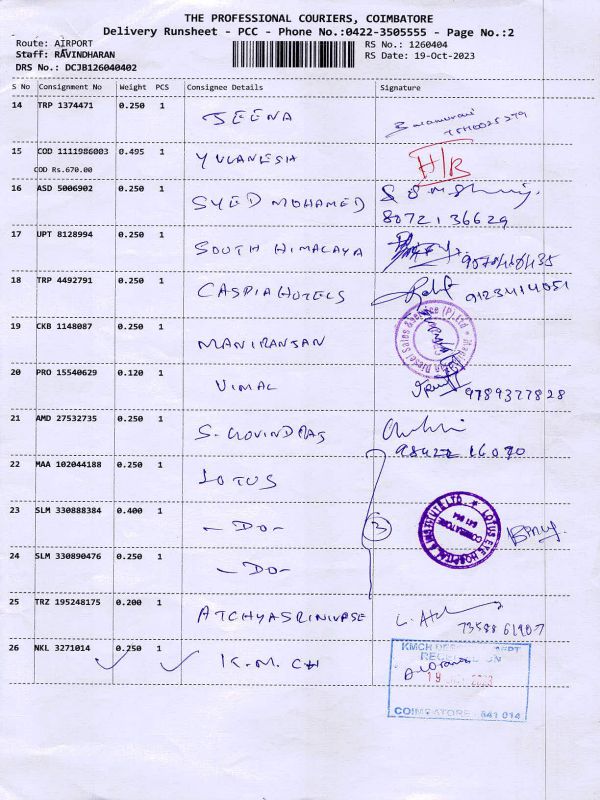 THE PROFESSIONAL COURIERS, COIMBATORE
Delivery Runsheet - PCC - Phone No.:0422-3505555 - Page No.:2
Route: AIRPORT
RS No.: 1260404
Staff: RAVINDHARAN
RS Date: 19-Oct-2023
DRS No.: DCJB126040402
S No Consignment No Weight PCS Consignee Details Signature
14 TRP 1374471 0.250 1 JEENA
15 COD 1111986003 0.495 1 YUVANESH H/B
COD Rs.670.00
16 ASD 5006902 0.250 1 SYED MOHAMED
8072136629
17 UPT 8128994 0.250 1 SOUTH HIMALAYA
18 TRP 4492791 0.250 1 CASPIA HOTELS 9123414051
19 CKB 1148087 0.250 1 MANIRANJAN
Diesel Sales & Service (P) Ltd
20 PRO 15540629 0.120 1 VIMAL 9789377828
21 AMD 27532735 0.250 1 S. GOVINDRAJ
98422 16070
22 MAA 102044188 0.250 1 LOTUS
23 SLM 330888384 0.400 1 -DO- 3
LOTUS EYE HOSPITAL & INSTITUTE LTD.
COIMBATORE
641 014
24 SLM 330890476 0.250 1 -DO-
25 TRZ 195248175 0.200 1 ATCHYASRINIVASE
73588 61907
26 NKL 3271014 0.250 1 K.M.CH
KMCH
19
COIMBATORE - 641 014